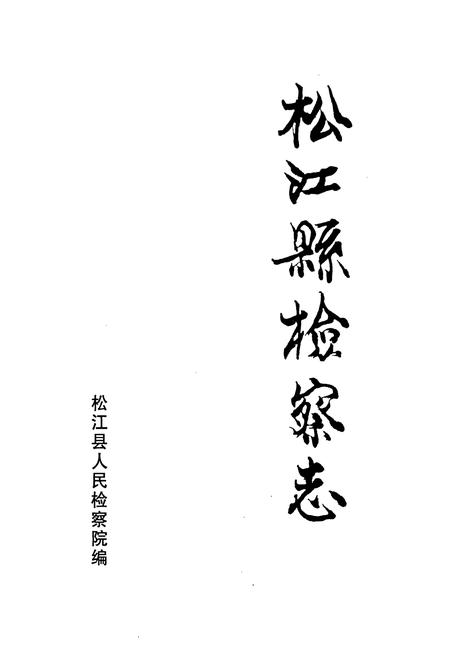 松江縣檢察志
松江县人民检察院编